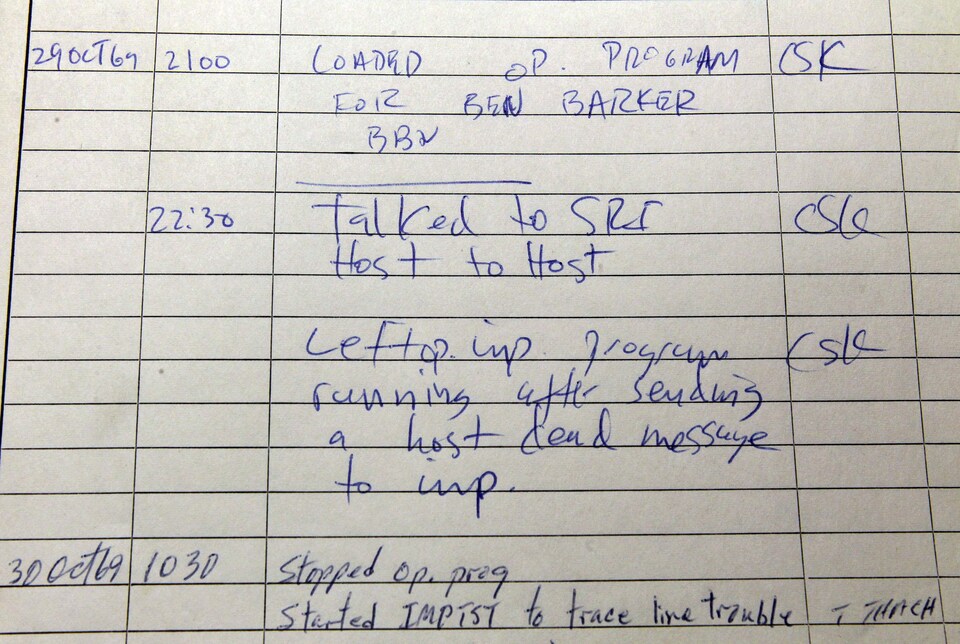 29 OCT 69 2100 LOADED OP. PROGRAM CSK
FOR BEN BARKER
BBN
22:30 Talked to SRI CSK
Host to Host
Left op. imp. program CSK
running after sending
a host dead message
to imp.
30 Oct 69 1030 Stopped op. prog
Started IMPTST to trace line trouble T THACH